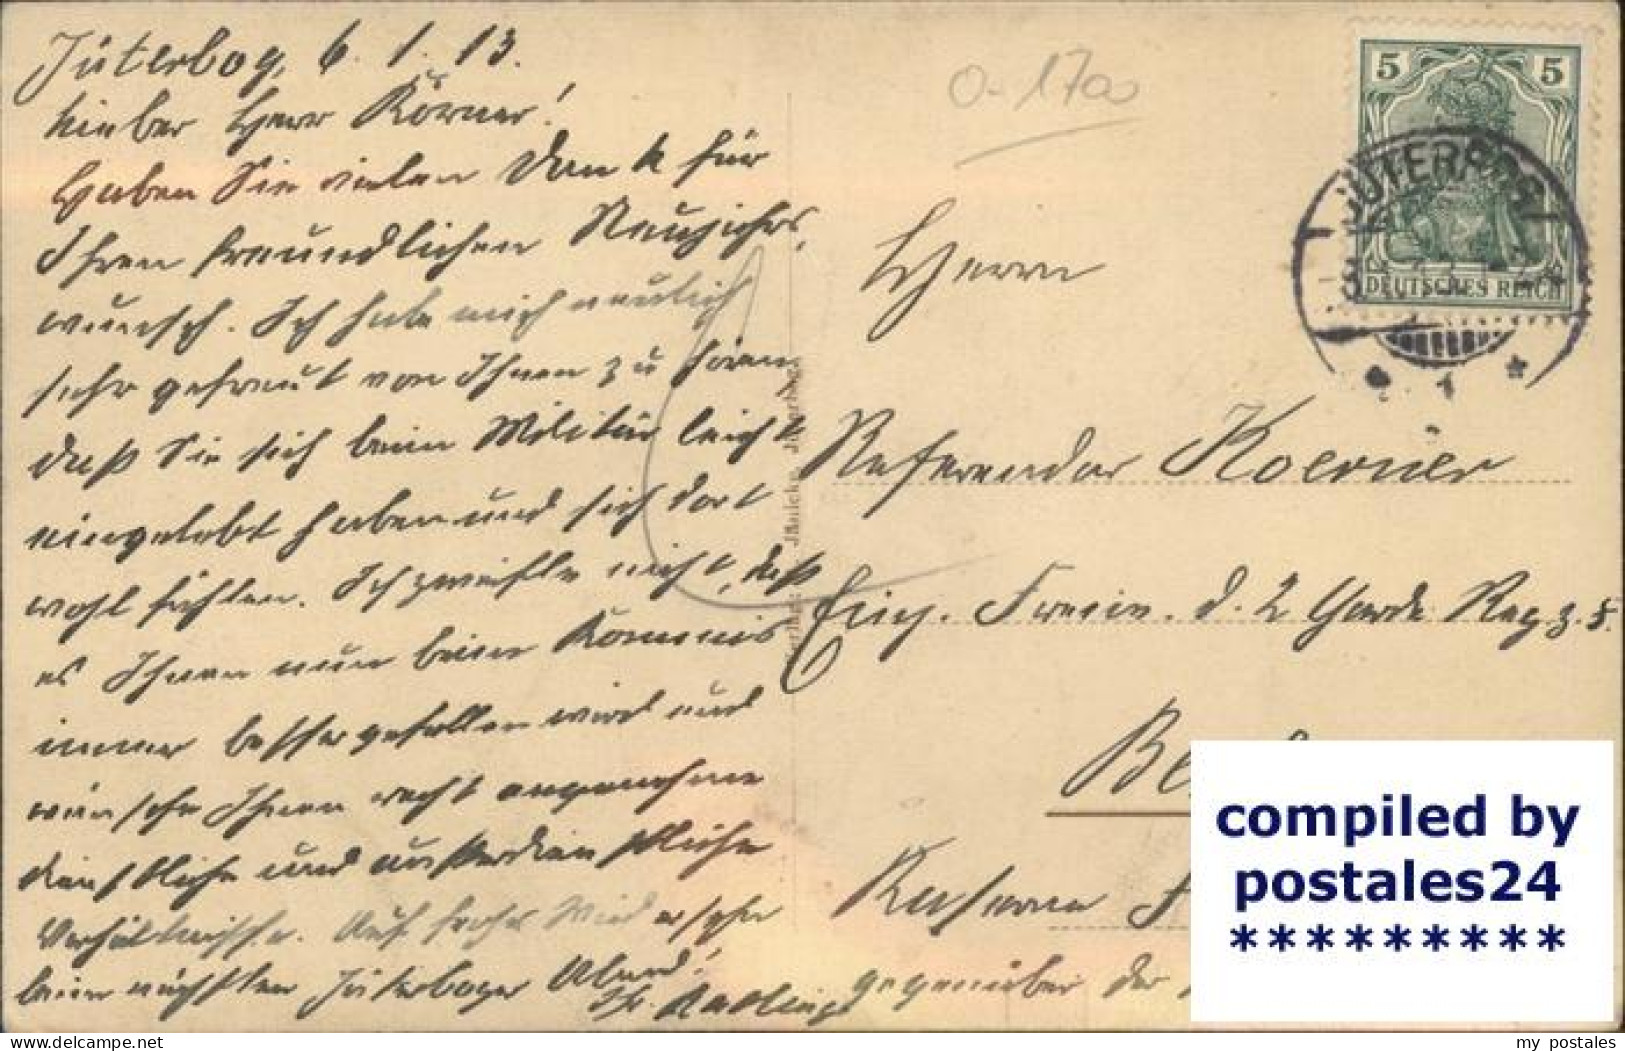 Jüterbog, 6. 1. 13.
Lieber Herr Körner!
Haben Sie vielen Dank für
Ihren freundlichen Neujahrs-
wunsch. Ich habe mich neulich
sehr gefreut von Ihnen zu hören,
daß Sie sich beim Militär leicht
eingelebt haben und sich dort
wohl fühlen. Ich zweifle nicht, daß
es Ihnen nun beim Kommis
immer besser gefallen wird und
wünsche Ihnen recht angenehme
dienstliche und außerdienstliche
Verhältnisse. Auf frohes Wiedersehn
beim nächsten Jüterboger Abend!
Ihr
0-1700
5 5
DEUTSCHES REICH
JÜTERBOG
Herrn
Referendar Koerner
Einj. Freiw. d. 2 Garde Reg z. F.
Kaserne
gegenüber der
compiled by
postales24
*********
my postales